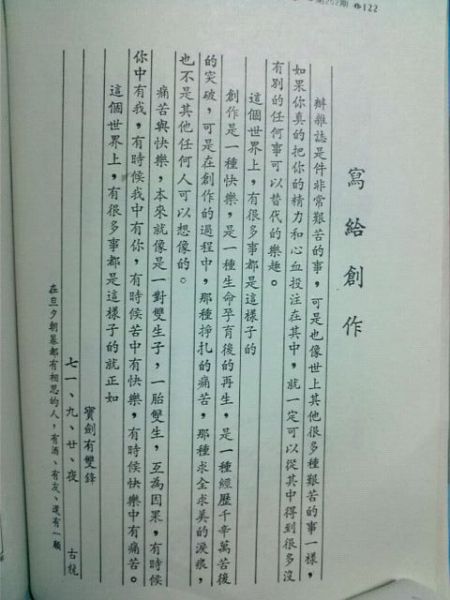 第262期 122
寫給創作
辦雜誌是件非常艱苦的事，可是也像世上其他很多種艱苦的事一樣，
如果你真的把你的精力和心血投注在其中，就一定可以從其中得到很多沒
有別的任何事可以替代的樂趣。
這個世界上，有很多事都是這樣子的
創作是一種快樂，是一種生命孕育後的再生，是一種經歷千辛萬苦後
的突破，可是在創作的過程中，那種掙扎的痛苦，那種求全求美的淚痕，
也不是其他任何人可以想像的。
痛苦與快樂，本來就像是一對雙生子，一胎雙生，互為因果，有時候
你中有我，有時候我中有你，有時候苦中有快樂，有時候快樂中有痛苦。
這個世界上，有很多事都是這樣子的就正如
寶劍有雙鋒
七一、九、廿、夜 古龍
在旦夕朝暮都有相思的人，有酒、有友、還有一顆